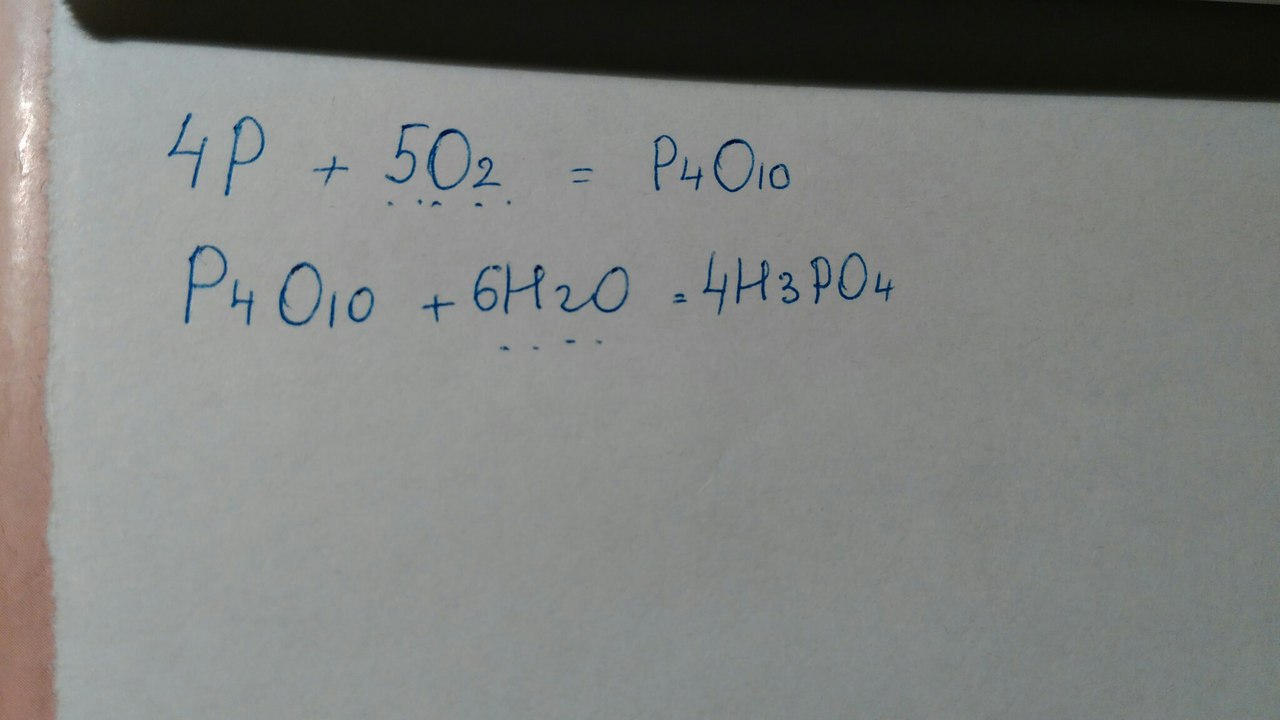 4P + 5O2 = P4O10
P4O10 + 6H2O = 4H3PO4